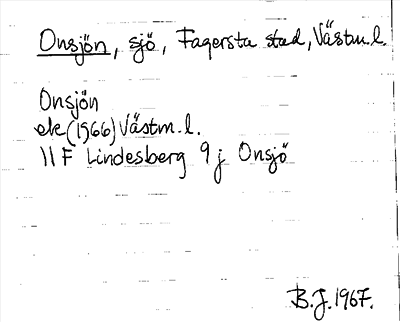 Onsjön, sjö, Fagersta stad, Västm.l.
Onsjön
ek(1966) Västm.l.
11 F Lindesberg 9 j Onsjö
B.J. 1967.